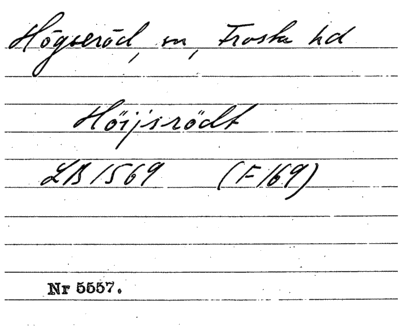 Högseröd, sn, Frosta hd
Höijsrödt
LB 1569 (F 169)
Nr 5557.